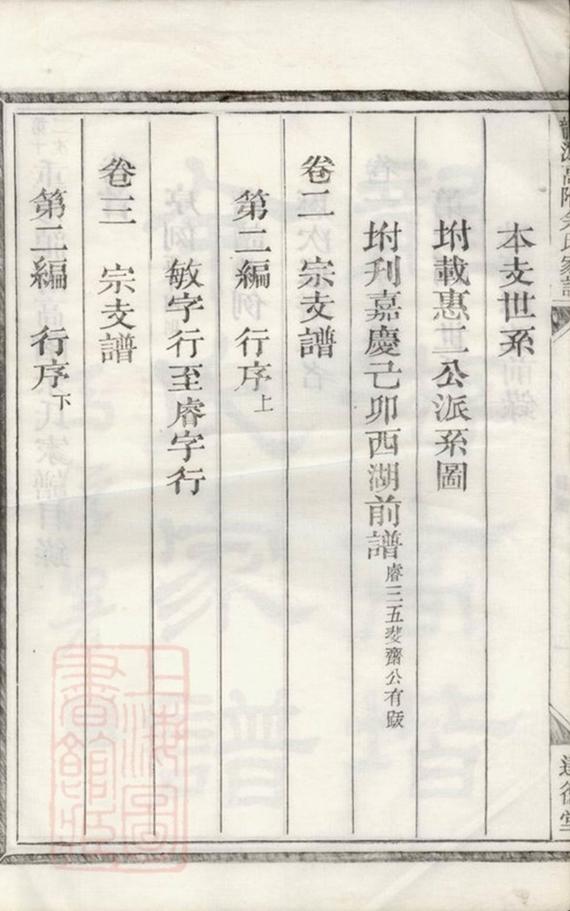 本支世系
坿載惠二公派系圖
坿刊嘉慶己卯西湖前譜 睿三五斐齋公有䟦
卷二 宗支譜
第二編 行序上
敏字行至睿字行
卷三 宗支譜
第二編 行序下
上海圖書館藏